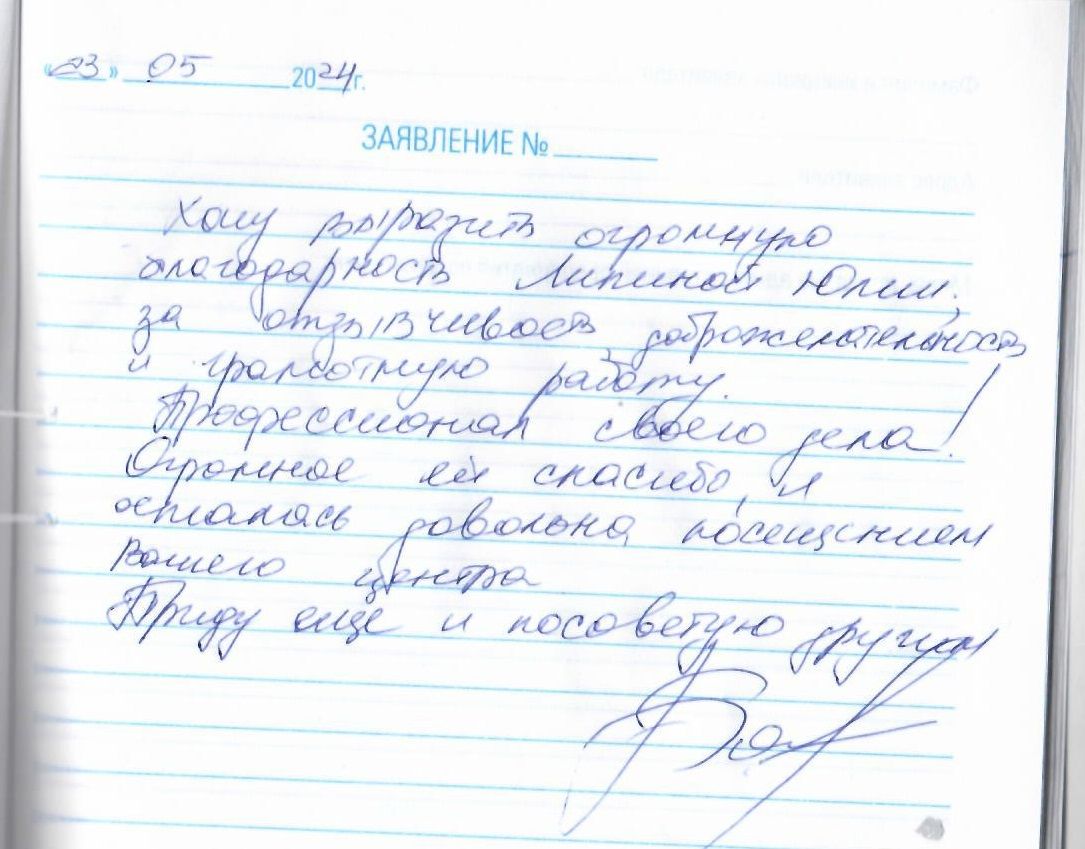 «23» 05 2024г.
ЗАЯВЛЕНИЕ № ______
Хочу выразить огромную
благодарность Липиной Юлии,
за отзывчивость, доброжелательность
и грамотную работу.
Профессионал своего дела!
Огромное ей спасибо, я
осталась довольна посещением
Вашего центра
Приду еще и посоветую другим